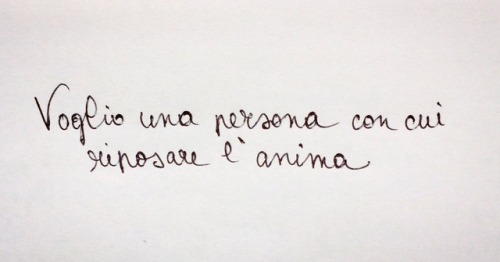 Voglio una persona con cui
riposare l'anima